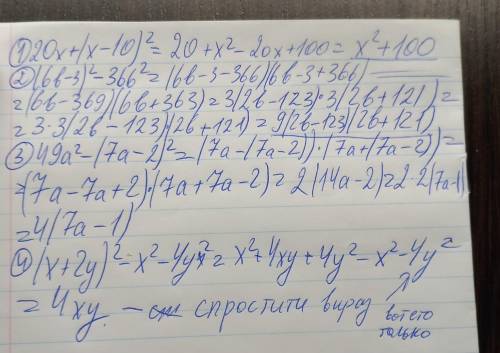 ① 20x+(x-10)²= 20+x²-20x+100= x²+100
② (6b-3)²-366²=(6b-3-366)(6b-3+366)
=(6b-369)(6b+363)=3(2b-123)·3(2b+121)=
=3·3(2b-123)(2b+121)=9(2b-123)(2b+121)
③ 49a²-(7a-2)²=(7a-(7a-2))·(7a+(7a-2))=
=(7a-7a+2)·(7a+7a-2)=2(14a-2)=2·2(7a-1)
=4(7a-1)
④ (x+2y)²-x²-4y²= x²+4xy+4y²-x²-4y²=
=4xy - спростити вираз
вот ето
только